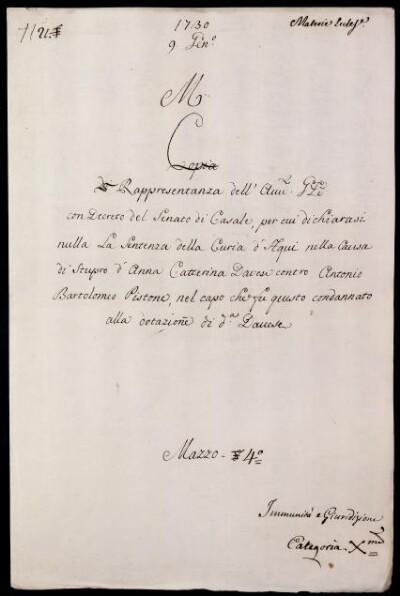 1730
Materie Eccles.e
9 Gen.o
M
C
Copia
Di Rappresentanza dell' Avv.to G.le
con Decreto del Senato di Casale, per cui dichiarasi
nulla La Sentenza della Curia d'Aqui nella Causa
di Stupro d'Anna Catterina Davese contro Antonio
Bartolomeo Pistone nel capo che fu questo condannato
alla dotazione di d.a Davese
Mazzo 4.o
Immunità e Giurisdizione
Categoria X.ma